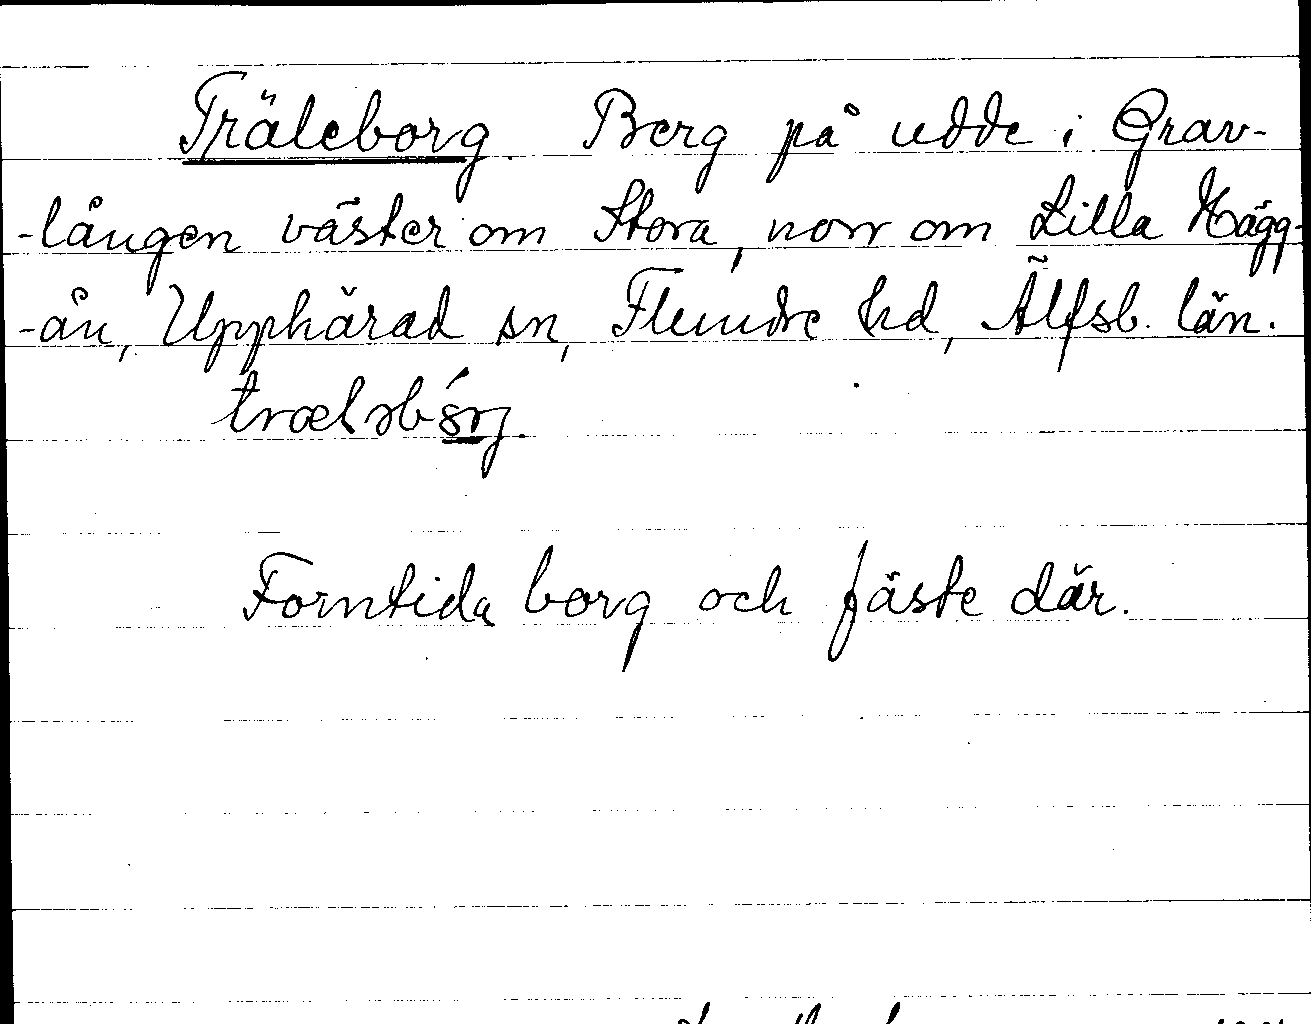 Träleborg. Berg på udde i Grav-
-lången väster om Stora, norr om Lilla Hägg-
-ån, Upphärad sn, Flundre hd, Älfsb. län.
Forntida borg och fäste där.